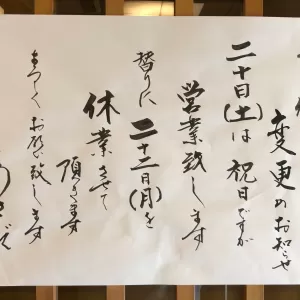 変更のお知らせ
二十日(土)は祝日ですが
営業致します
替りに二十二日(月)を
休業させて
頂きます
よろしくお願い致します